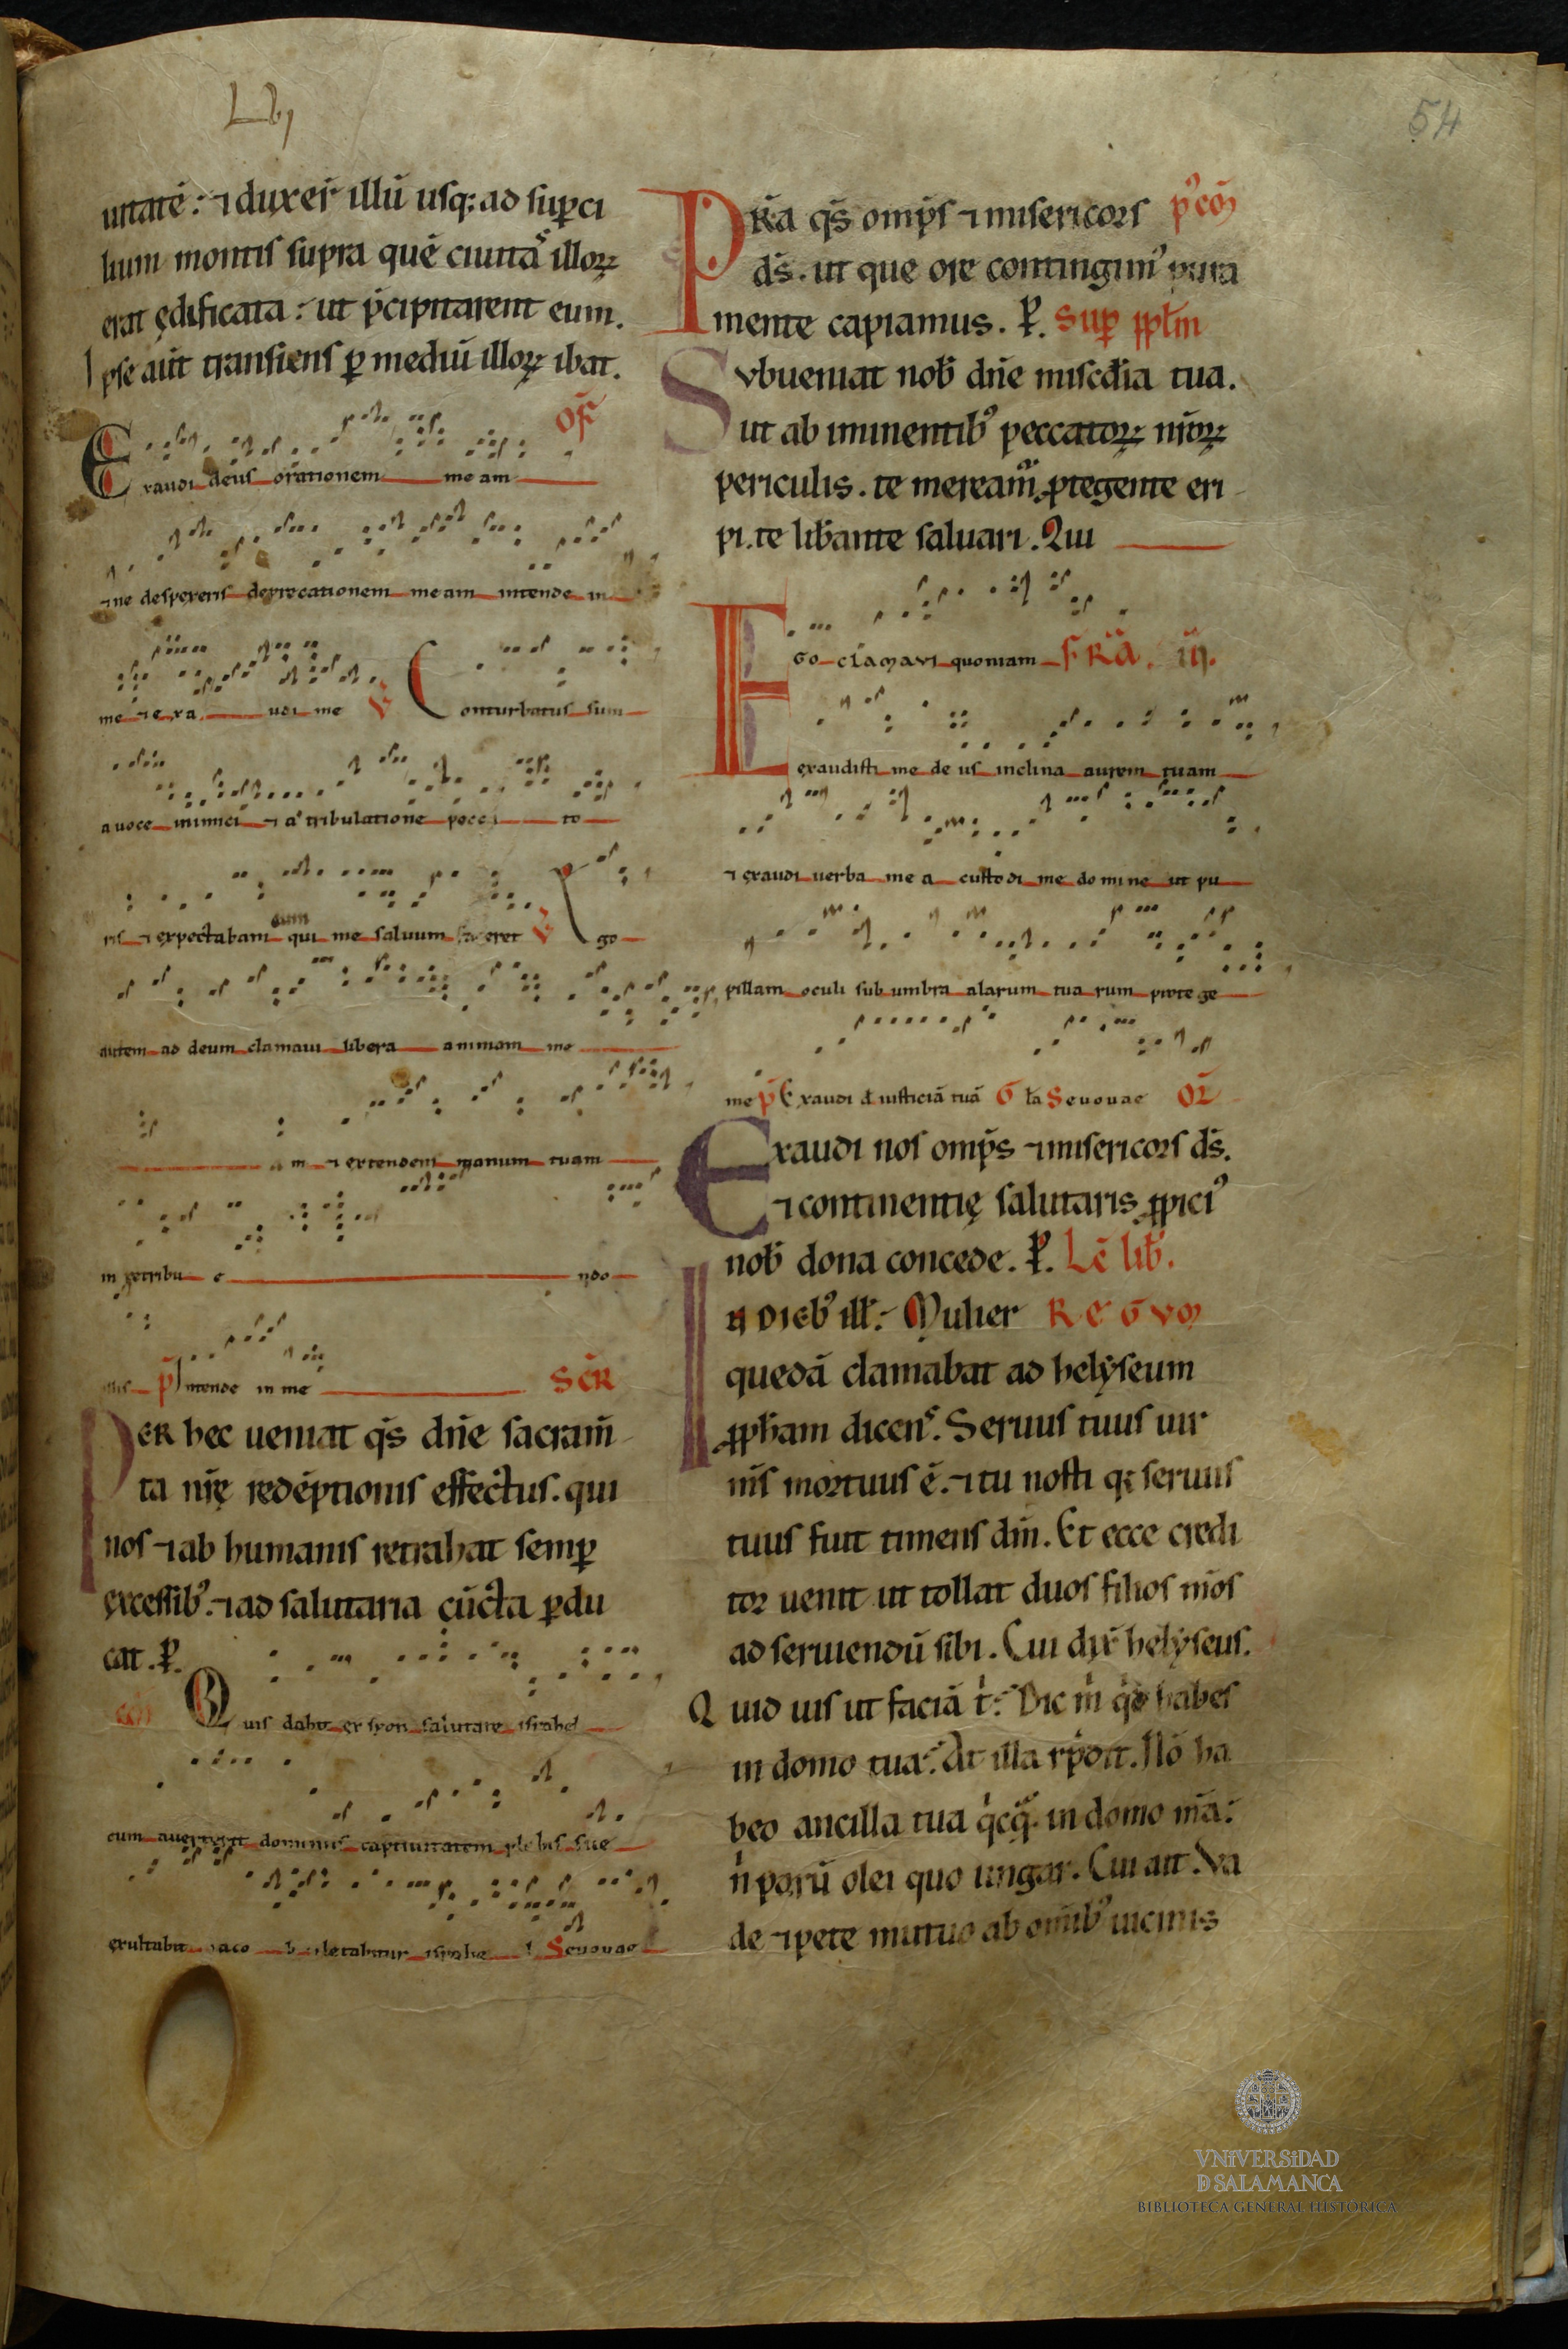 Lvj
54
uitatē: ⁊ duxer̄ illū usq; ad sup̱ci
lium montis supra quē ciuitaˢ illoꝝ
erat ędificata: ut p̄cipitarent eum.
Ipse aūt transiens ꝑ mediū illoꝝ ibat.
Exaudi deus orationem me am
OF̄
⁊ne despexeris deprecationem meam intende in
me ⁊ e xa udi me ℣ Conturbatus sum
a uoce inimici ⁊ a tribulatione pecca to
ris ⁊ expectabam eum qui me saluum faceret ℣ Ego
autem ad deum clamaui libera animam me
a m ⁊ extendem manum tuam
in retribu e ndo
illis p̄ Intende in me SCR̄
PER hec ueniat q̄s dn̄e sacram̄
ta nr̄ę redēptionis effectus. qui
nos ⁊ ab humanis retrahat semꝑ
excessib᾽. ⁊ ad salutaria cūcta ꝑdu
cat. ꝑ.
com̄ Quis dabit ex syon salutare israhel
cum auerterit dominus captiuitatem plebis sue
exultabit iaco b ⁊ letabitur israhe l Seuouae
PR̄a q̄s omp̄s ⁊ misericors p᾽com̄
d̄s. ut que ore contingim᾽ pura
mente capiamus. ꝑ. Suꝑ pp̄lm
Subueniat nob̄ dn̄e misc̄dia tua.
ut ab iminentib᾽ peccatoꝝ nr̄oꝝ
periculis. te mereamur ꝓtegente eri
pi. te lib̄ante saluari. Qui
EGo clamaui quoniam FR̄a. iij.
exaudisti me de us inclina aurem tuam
⁊ exaudi uerba me a custodi me domine ut pu
pillam oculi sub umbra alarum tua rum protege
me p̄ Exaudi d̄ iusticiā tuā Gl̄a Seuouae OR̄
Exaudi nos omp̄s ⁊ misericors d̄s.
⁊ continentię salutaris ꝓpici᾽
nob̄ dona concede. ꝑ. Lc̄ lib̄.
IN DIEB᾽ ill̄: Mulier REGVm
quedā clamabat ad helẏseum
ꝓph̄am dicenˢ. Seruus tuus uir
m̄s mortuus ē. ⁊ tu nosti q; seruus
tuus fuit timens dm̄. Et ecce credi
tor uenit ut tollat duos filios m̄os
ad seruiendū sibi. Cui dix̄ helẏseus.
Quid uis ut faciā t̄: Dic m̄ qd̄ habes
in domo tua: At illa rn̄dit. Nō ha
beo ancilla tua qicqͣ. in domo m̄a:
n̄ parū olei quo ungar. Cui ait. Va
de ⁊ pete mutuo ab om̄ib᾽ uicinis
VNiVERSiDAD
D SALAMANCA
BIBLIOTECA GENERAL HISTÓRICA